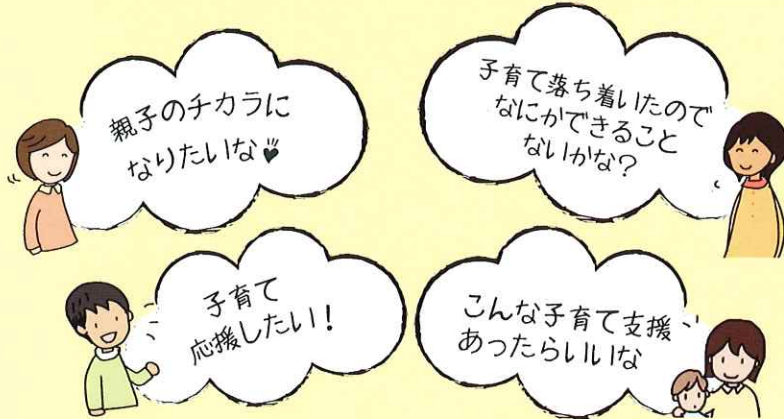 親子のチカラに
なりたいな♥
子育て落ち着いたので
なにかできること
ないかな?
子育て
応援したい!
こんな子育て支援
あったらいいな